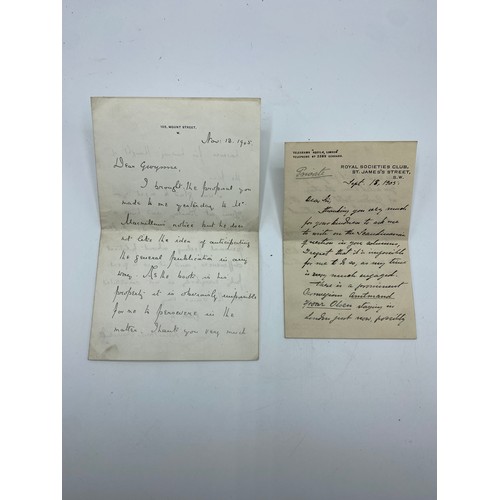 105, MOUNT STREET,
W.
Nov. 18. 1905
Dear Georgine,
I brought the proposal you
made to me yesterday to Mr
Macmillan's notice but he does
not like the idea of anticipating
the general publication in any
way. As the book is his
property it is obviously impossible
for me to persevere in the
matter. Thank you very much
TELEGRAMS
TELEPHONE
ROYAL SOCIETIES CLUB,
ST. JAMES'S STREET,
S.W.
Private
Sept. 18, 1905.
Dear Sir,
Thanking you very much
for your kindness to ask me
to write on the Scandinavian
question in your columns,
I regret that it is impossible
for me to do so, as my time
is very much engaged.
There is a prominent
Norwegian Amtmand
Olsen staying in
London just now, possibly